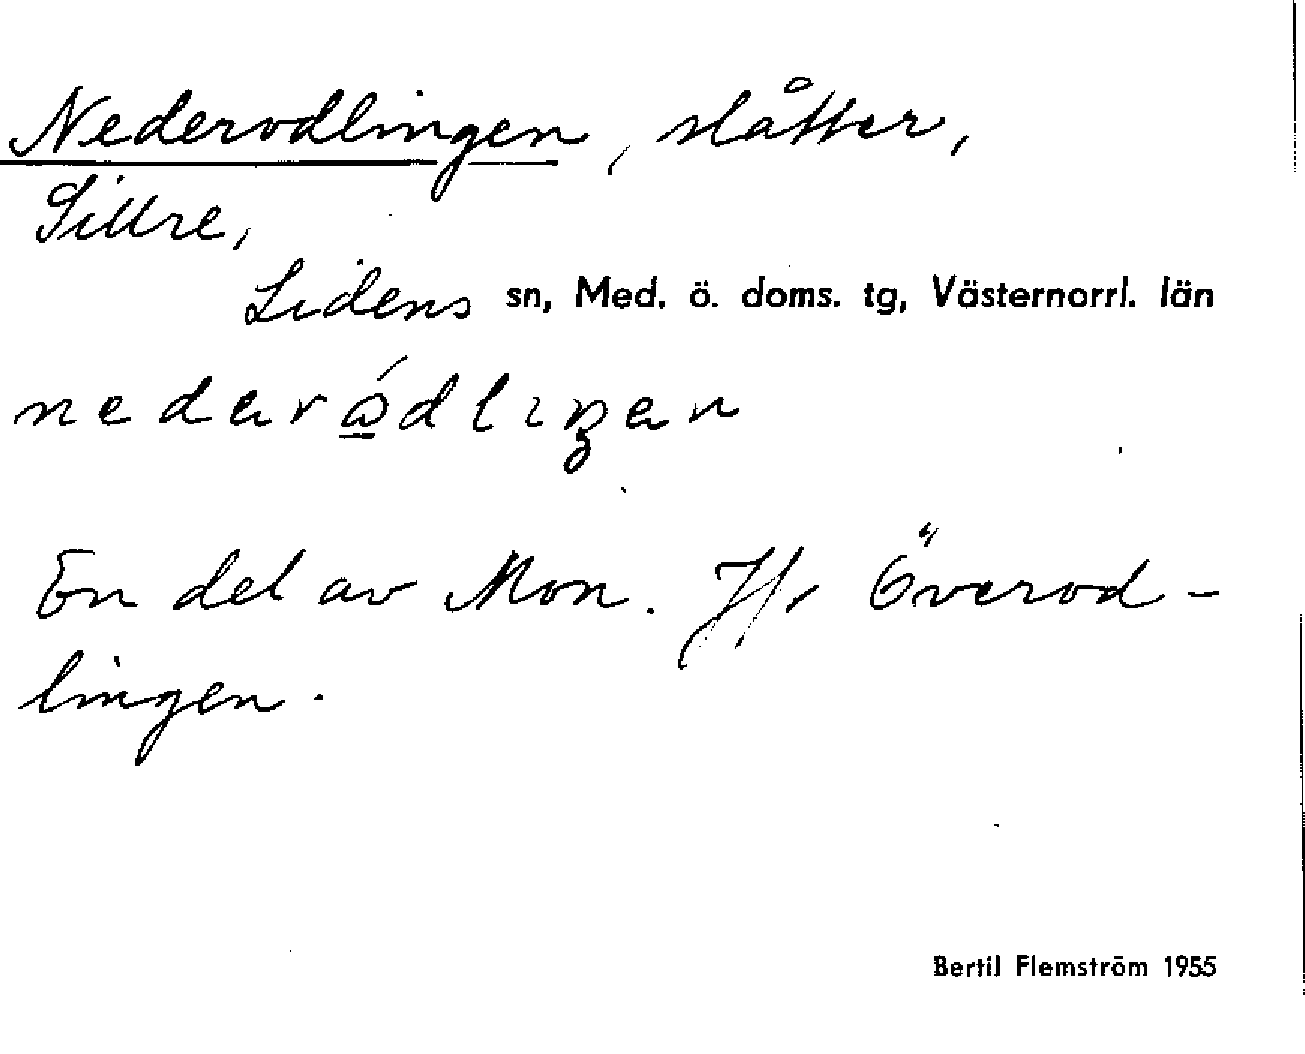 Nederodlingen, slåtter,
Sillre,
Lidens sn, Med. ö. doms. tg, Västernorrl. län
En del av Mon. Jfr Överod-
lingen.
Bertil Flemström 1955